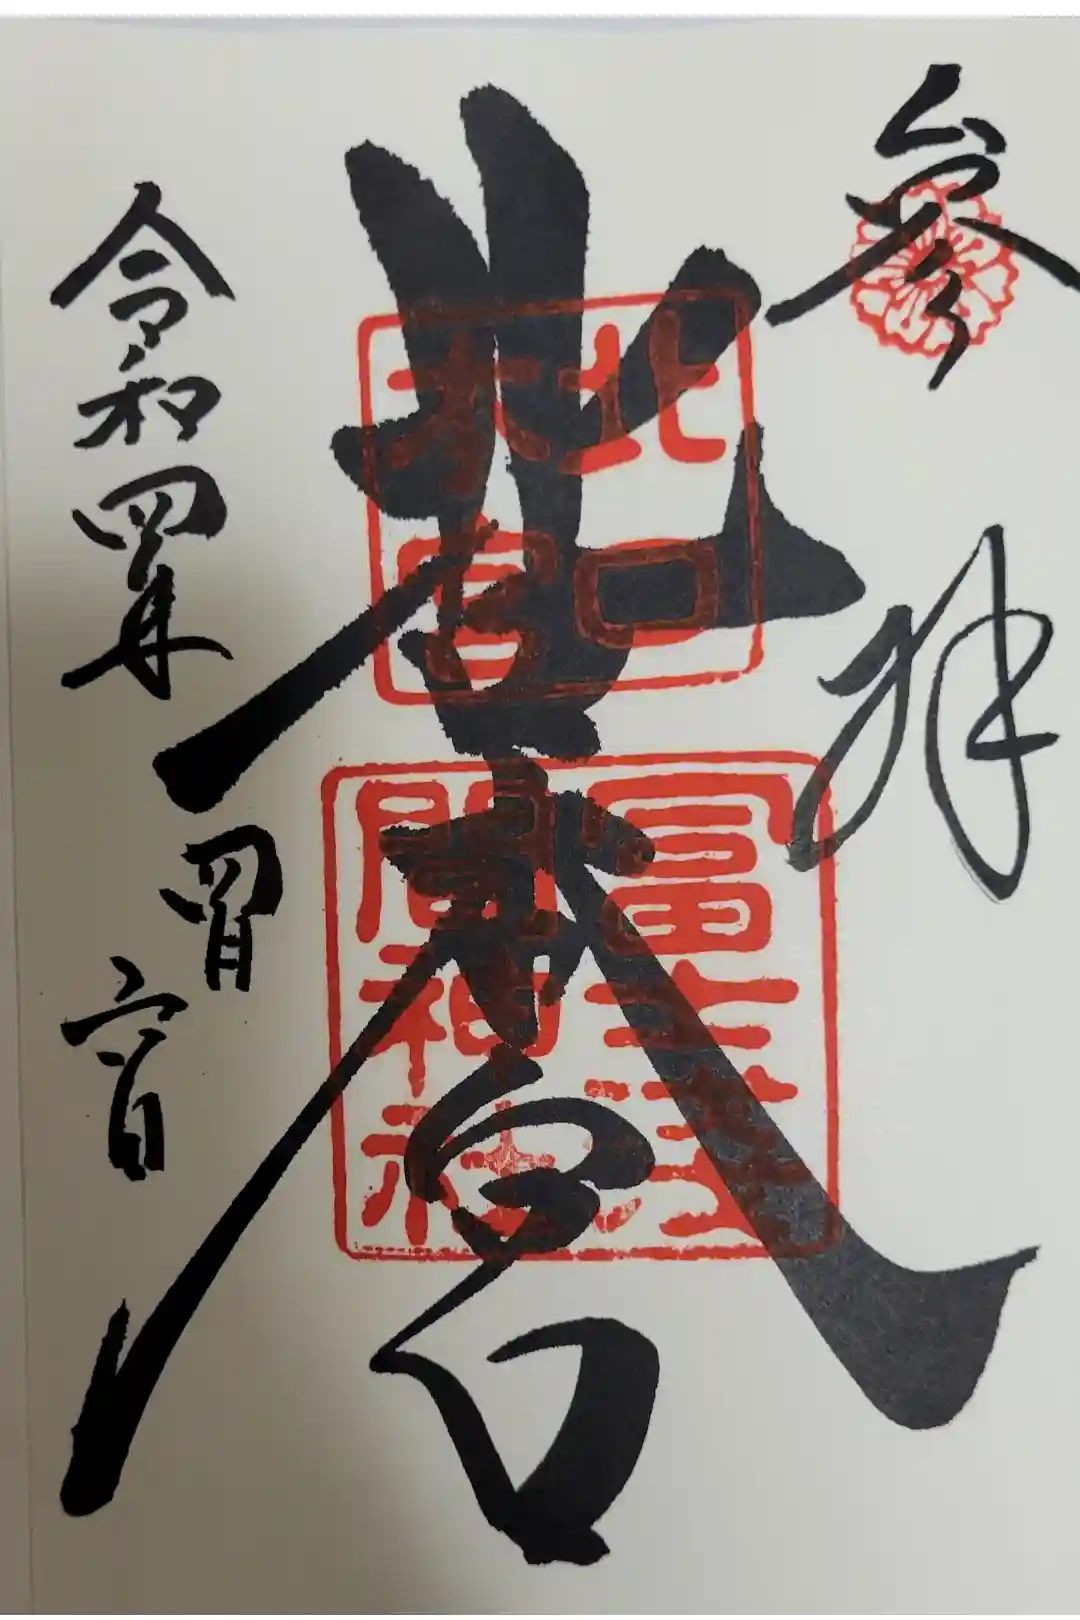 参拝
北口本宮
北口
本宮
冨士浅
間神社
令和四年
四月
六日